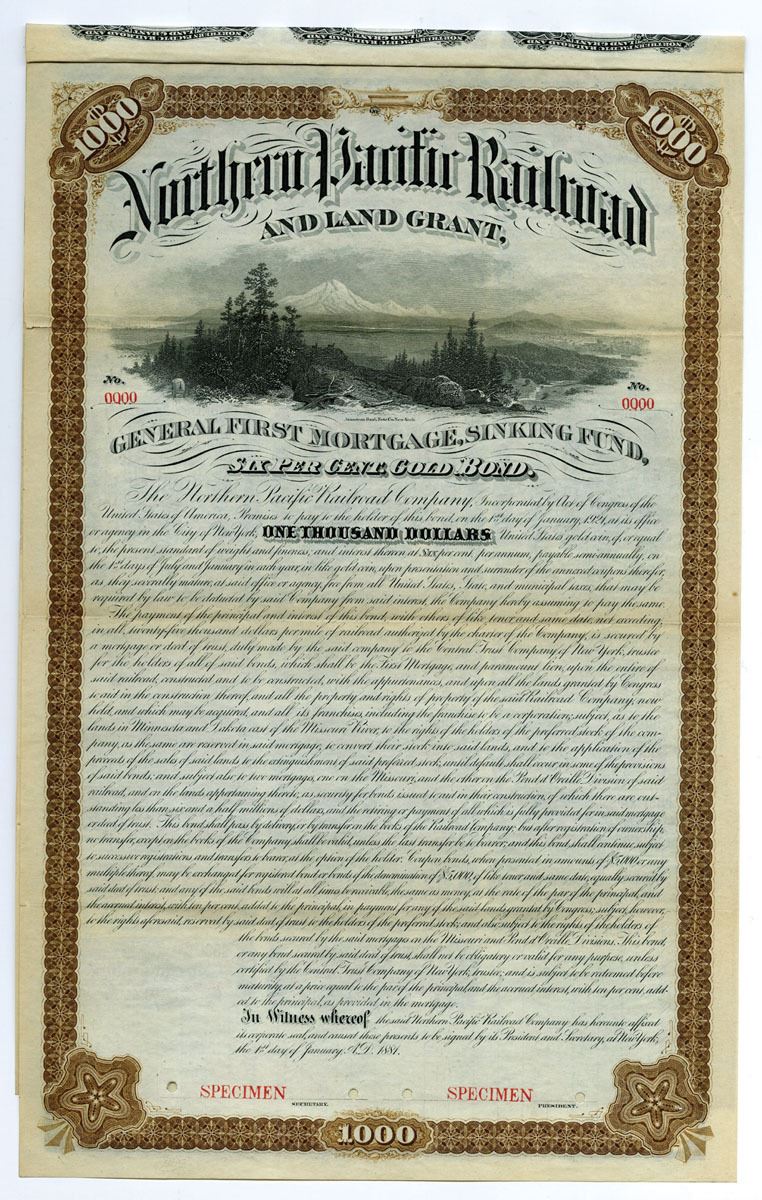 NORTHERN PACIFIC RAILROAD AND LAND GRANT
1000
1000
Northern Pacific Railroad
AND LAND GRANT,
No. No.
0000 0000
American Bank Note Co. New York.
GENERAL FIRST MORTGAGE, SINKING FUND,
SIX PER CENT, GOLD BOND.
The Northern Pacific Railroad Company, Incorporated by Act of Congress of the
United States of America, Promises to pay to the holder of this bond, on the 1st day of January, 1921, at its office
or agency in the City of New York, ONE THOUSAND DOLLARS United States gold coin, of, or equal
to, the present standard of weight and fineness; and interest thereon at six per cent. per annum, payable semi-annually, on
the 1st days of July and January in each year, in like gold coin, upon presentation and surrender of the annexed coupons therefor,
as they severally mature, at said office or agency, free from all United States, State, and municipal taxes, that may be
required by law to be deducted by said Company from said interest, the Company hereby assuming to pay the same.
The payment of the principal and interest of this bond, with others of like tenor and same date, not exceeding,
in all, twenty-five thousand dollars per mile of railroad authorized by the charter of the Company, is secured by
a mortgage or deed of trust, duly made by the said company to the Central Trust Company of New York, trustee
for the holders of all of said bonds, which shall be the First Mortgage, and paramount lien, upon the entire of
said railroad, constructed and to be constructed, with the appurtenances, and upon all the lands granted by Congress
to aid in the construction thereof, and all the property and rights of property of the said Railroad Company, now
held, and which may be acquired, and all its franchises, including the franchise to be a corporation; subject, as to the
lands in Minnesota and Dakota east of the Missouri River, to the rights of the holders of the preferred stock of the com-
pany, as the same are reserved in said mortgage, to convert their stock into said lands, and to the application of the
proceeds of the sales of said lands to the extinguishment of said preferred stock, until default shall occur in some of the provisions
of said bonds, and subject also to two mortgages, one on the Missouri, and the other on the Pend d'Oreille, Division of said
railroad, and on the lands appertaining thereto, as security for bonds issued to aid in their construction, of which there are out-
standing less than six and a half millions of dollars, and the retiring or payment of all which is fully provided for in said mortgage
or deed of trust. This bond shall pass by delivery, or by transfer on the books of the Railroad Company; but after registration of ownership,
no transfer, except on the books of the Company shall be valid, unless the last transfer be to bearer, and this bond shall continue subject
to successive registrations and transfers to bearer, at the option of the holder. Coupon bonds, when presented in amounts of $5,000, or any
multiple thereof, may be exchanged for registered bond or bonds of the denomination of $5,000, of like tenor and same date, equally secured by
said deed of trust; and any of the said bonds will at all times be receivable, the same as money, at the rate of the par of the principal, and
the accrued interest, with ten per cent. added to the principal, in payment for any of the said lands granted by Congress; subject, however,
to the rights aforesaid, reserved by said deed of trust to the holders of the preferred stock; and also subject to the rights of the holders of
the bonds secured by the said mortgages on the Missouri and Pend d'Oreille, Divisions. This bond,
or any bond secured by said deed of trust, shall not be obligatory or valid for any purpose, unless
certified by the Central Trust Company of New York, trustee; and is subject to be redeemed before
maturity, at a price equal to the par of the principal, and the accrued interest, with ten per cent. add-
ed to the principal, as provided in the mortgage.
In Witness whereof the said Northern Pacific Railroad Company has hereunto affixed
its corporate seal, and caused these presents to be signed by its President and Secretary, at New York,
the 1st day of January A.D. 1881.
SPECIMEN SPECIMEN
SECRETARY. PRESIDENT.
1000